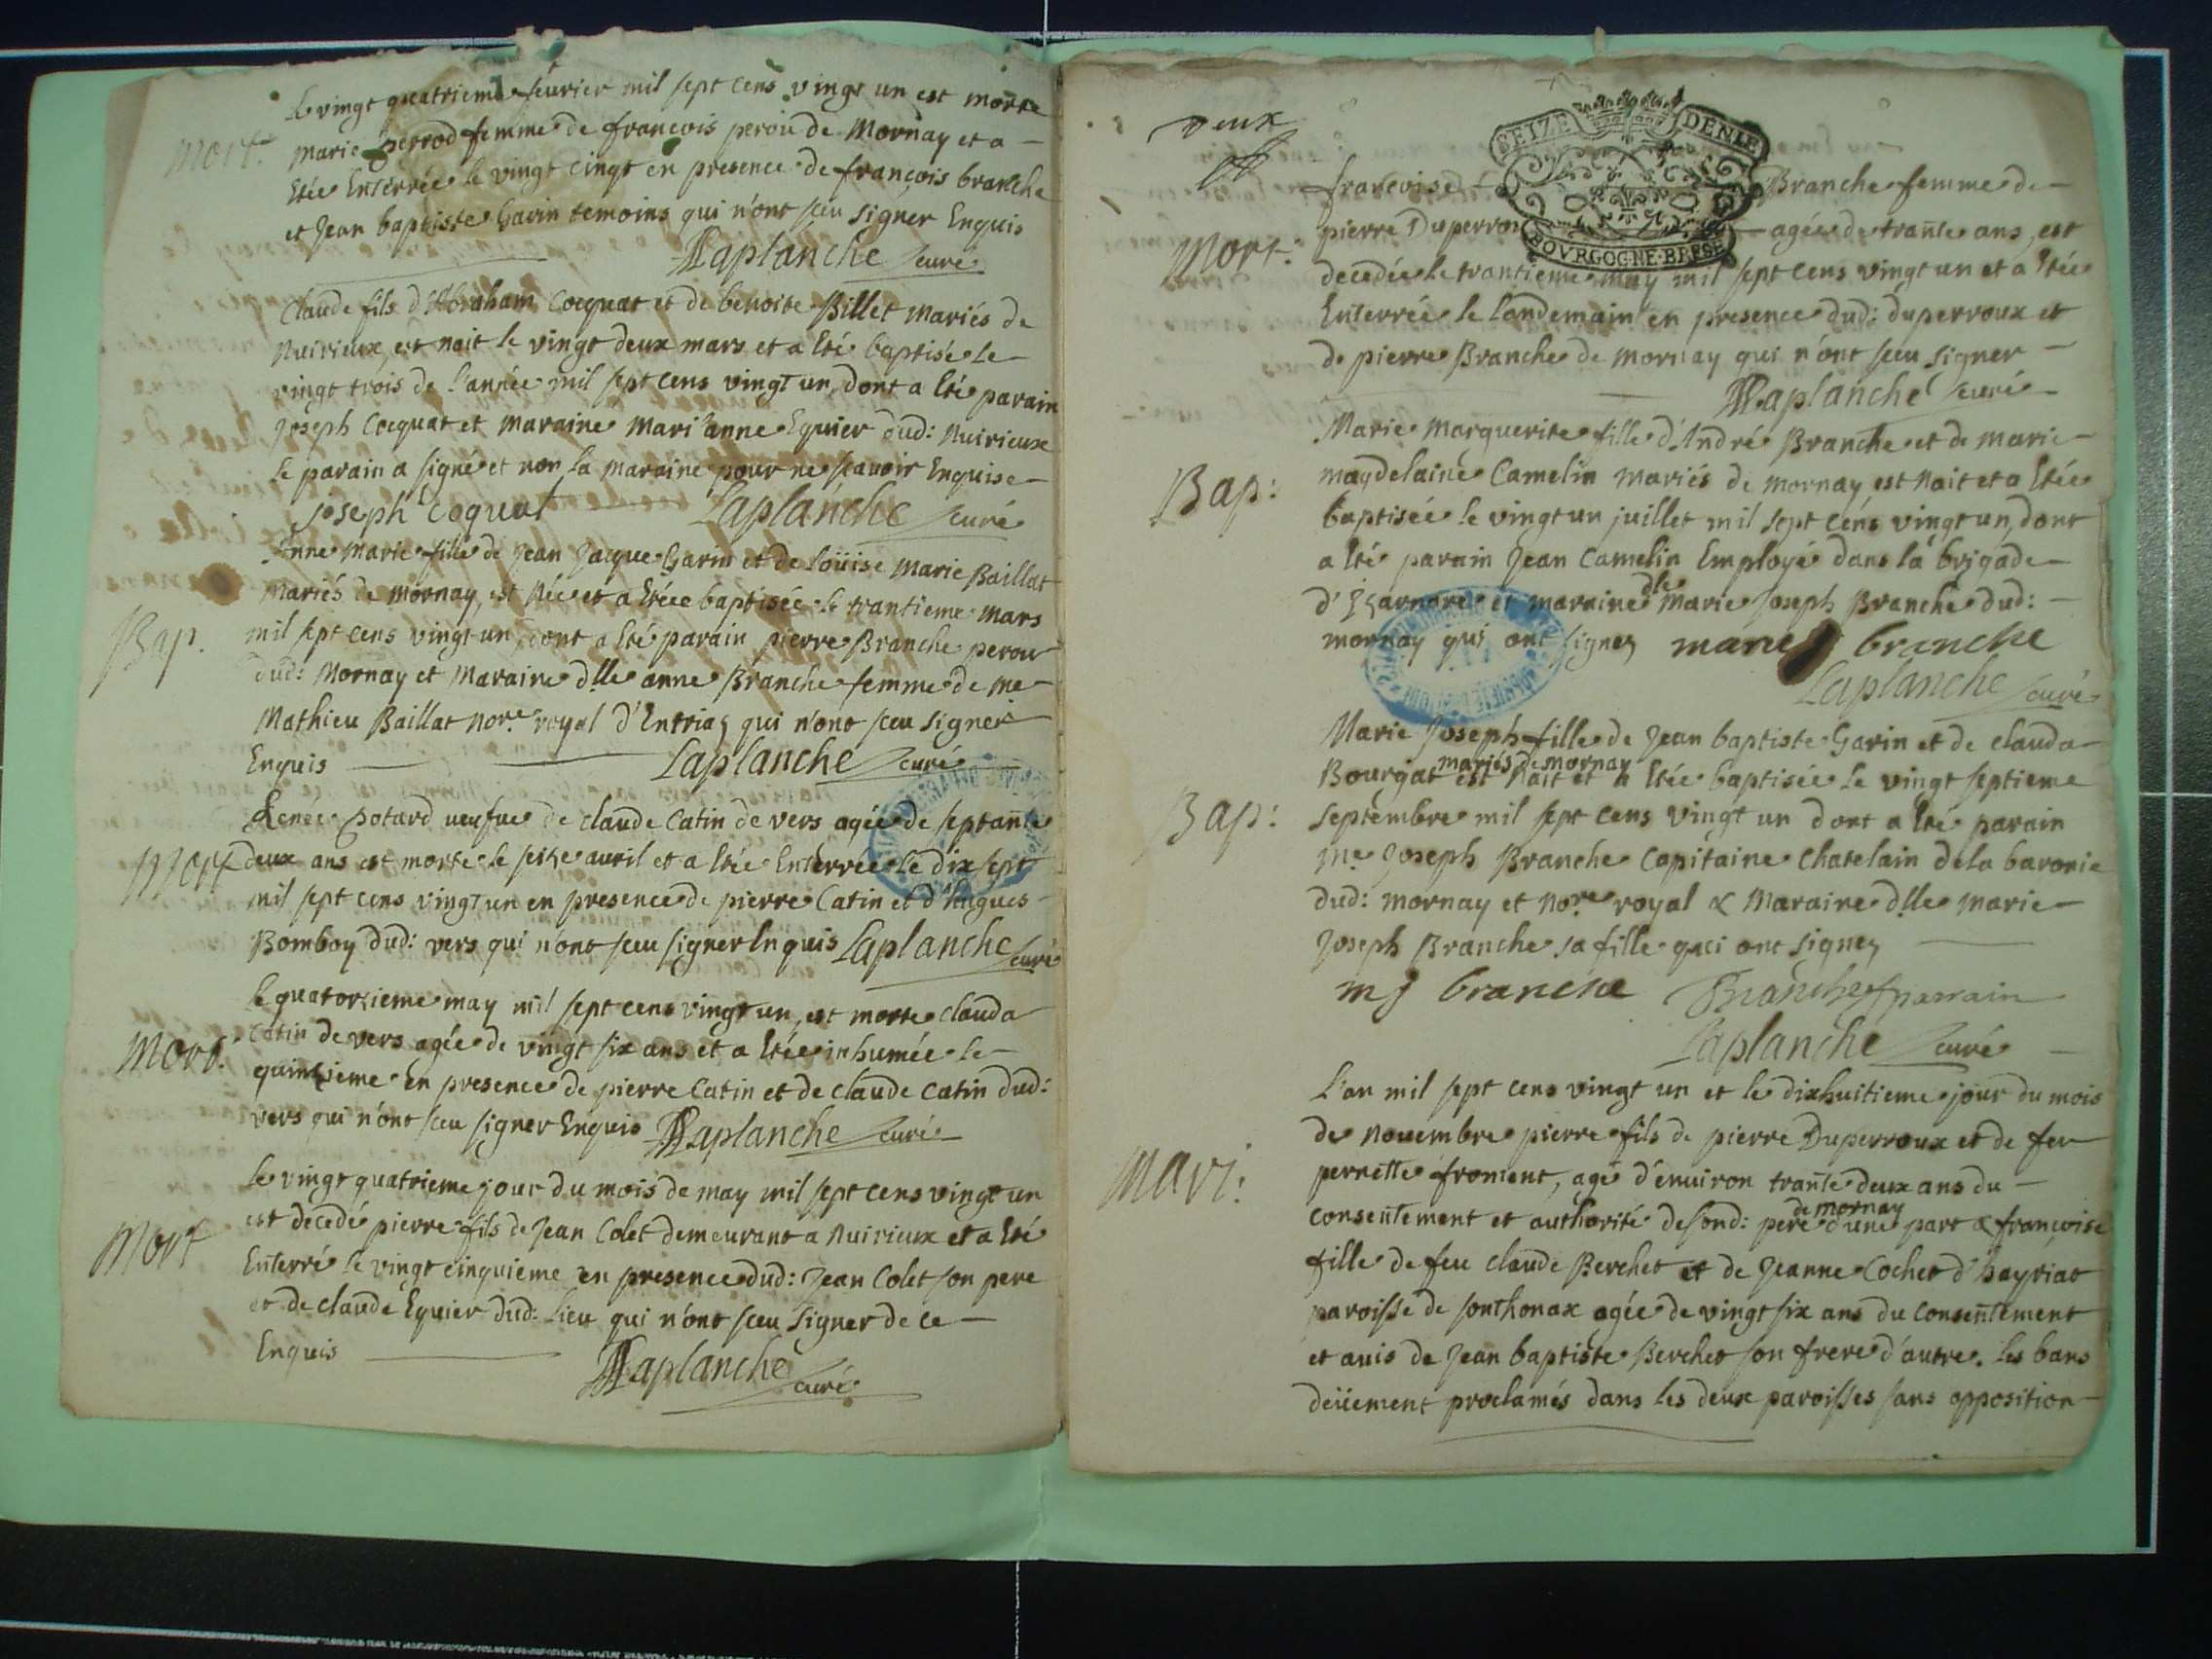 Le vingt quatrieme feurier mil sept cens vingt un est morte
Mort.
marie perrod femme de francois perou de Mornay et a
Etée Enterrée le vingt cinqt en presence de francois branche
et Jean baptiste Garin temoins qui n'ont sceu signer Enquis
Laplanche curé
Claude fils d'Abraham Cocquat et de benoite Billet Mariés de
Nuirieux, est nait le vingt deux mars et a Eté baptisé le
vingt trois de l'année mil sept cens vingt un, dont a Eté parain
Joseph Cocquat et maraine Mari'anne Equier dud: Nuirieux
le parain a signé et non la maraine pour ne scavoir Enquise
Joseph Coquat Laplanche curé
Anne Marie fille de Jean Jacque Garin et de Loüise Marie Baillat
Mariés de Mornay, est Née et a Etéee baptisée le trantieme Mars
Bap.
mil sept cens vingt un, dont a Eté parain pierre Branche perou
dud: Mornay et Maraine dlle anne Branche femme de me
Mathieu Baillat Nore royal d'Entriaz qui n'ont sceu signer
Enquis Laplanche curé
Renée Potard ueufue de claude Catin de vers agée de septante
Mort
deux ans est morte le seize auril et a Etée Enterrée le dix sept
mil sept cens vingt un en presence de pierre Catin et d'hugues
Bomboy dud: vers qui n'ont sceu signer Enquis Laplanche curé
le quatorzieme may mil sept cens vingt un, est morte clauda
Mort.
Catin de vers agée de vingt six ans et a Etée inhumée le
quinzieme en presence de pierre Catin et de claude Catin dud:
vers qui n'ont sceu signer Enquis Laplanche curé
le vingt quatrieme jour du mois de may mil sept cens vingt un
Mort
est decedé pierre fils de Jean Colet demeurant a Nuirieux et a Eté
Enterré le vingt cinquieme en presence dud: Jean Colet son pere
et de claude Equier dud: lieu qui n'ont sceu signer de ce
Enquis
Laplanche curé
deux
SEIZE DENIE
BOVRGOGNE·BRESE
francoise Branche femme de
Mort:
pierre Duperrou agée de trante ans, est
decedée le trantieme may mil sept cens vingt un et a Etée
Enterrée le landemain en presence dud: duperroux et
de pierre Branche de mornay qui n'ont sceu signer
Laplanche curé
Marie Marguerite fille d'André Branche et de marie
Bap:
magdelaine Camelin mariés de mornay est Nait et a Etée
baptisée le vingt un juillet mil sept cens vingt un, dont
a Eté parain Jean Camelin Employé dans la brigade
d'Izarnore et maraine dlle Marie Joseph Branche dud:
mornay qui ont signez marie j branche
Laplanche curé
Marie Joseph fille de Jean baptiste Garin et de clauda
mariés de mornay
Bourgat est Nait et a Etée baptisée le vingt septieme
Bap:
septembre mil sept cens vingt un dont a Eté parain
me Joseph Branche Capitaine Chatelain dela baronie
dud: mornay et Nore royal & Maraine dlle Marie
Joseph Branche sa fille qui ont signez
m j branche Branche parrain
Laplanche curé
L'an mil sept cens vingt un et le dixhuitieme jour du mois
de Nouembre pierre fils de pierre Duperroux et de feu
Mari:
perrette froment, agé d'enuiron trante deux ans du
de mornay
consentement et authorité desond: pere d'une part & francoise
fille de feu claude Berchet et de Jeanne Cochet d'hayriat
paroisse de sonthonax agée de vingt six ans du consentement
et auis de Jean baptiste Berchet son frere d'autre. les bans
deüement proclamés dans les deux paroisses sans opposition